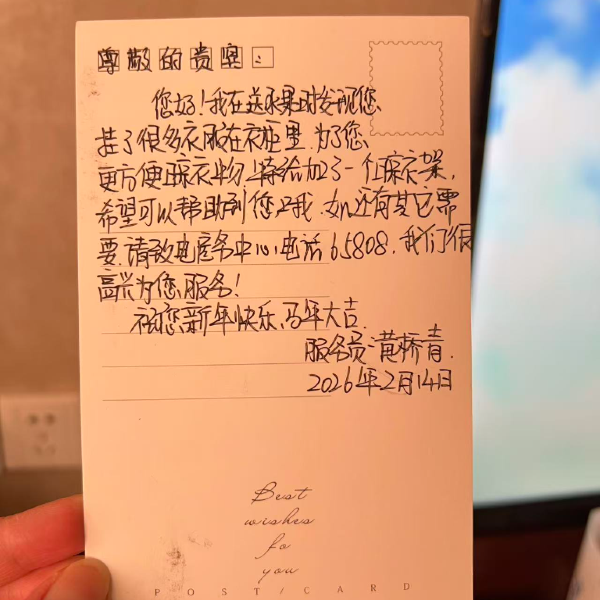 尊敬的贵宾：
您好！我在送水果时发现您
挂了很多衣服在衣柜里，为了您
更方便晾衣物，特给加了一个晾衣架，
希望可以帮助到您，如还有其它需
要，请致电服务中心，电话65808，我们很
高兴为您服务！
祝您新年快乐，马年大吉.
服务员：黄桥青.
2026年2月14日
Best
wishes
fo
you
POST/CARD